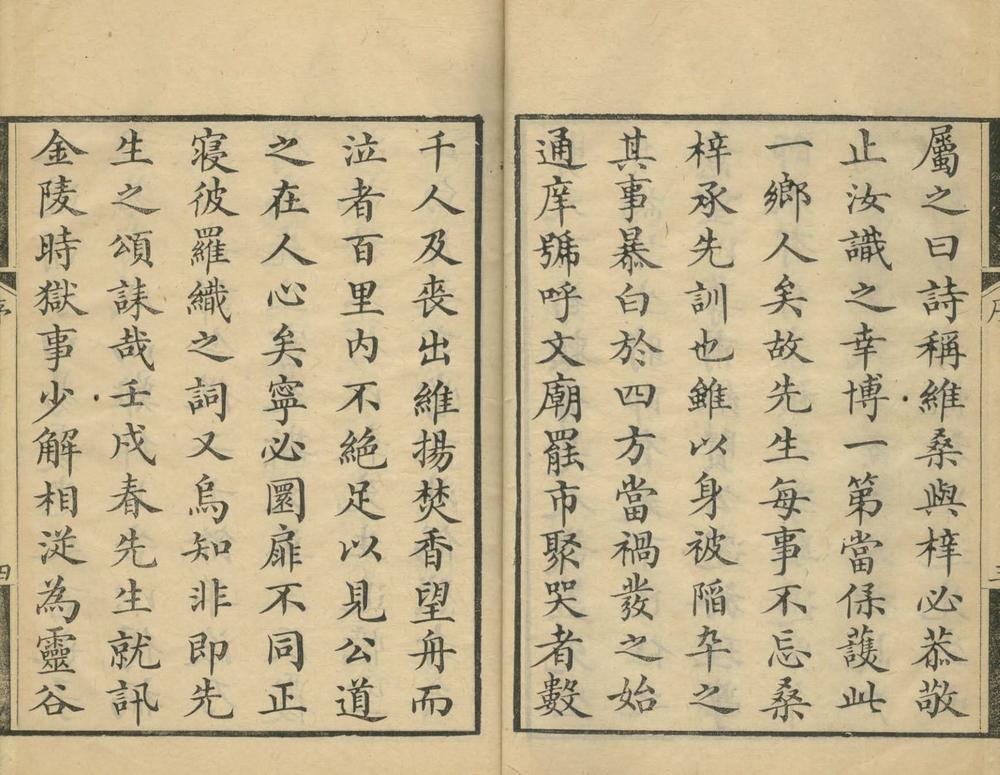 屬之曰詩稱維桑與梓必恭敬
止汝識之幸博一第當保護此
一鄉人矣故先生每事不忘桑
梓承先訓也雖以身被陷卒之
其事暴白於四方當禍發之始
通庠號呼文廟罷市聚哭者數
千人及喪出維揚焚香望舟而
泣者百里內不絕足以見公道
之在人心矣寧必圜扉不同正
寢彼羅織之詞又烏知非即先
生之頌誄哉壬戌春先生就訊
金陵時獄事少解相從為靈谷
序
四